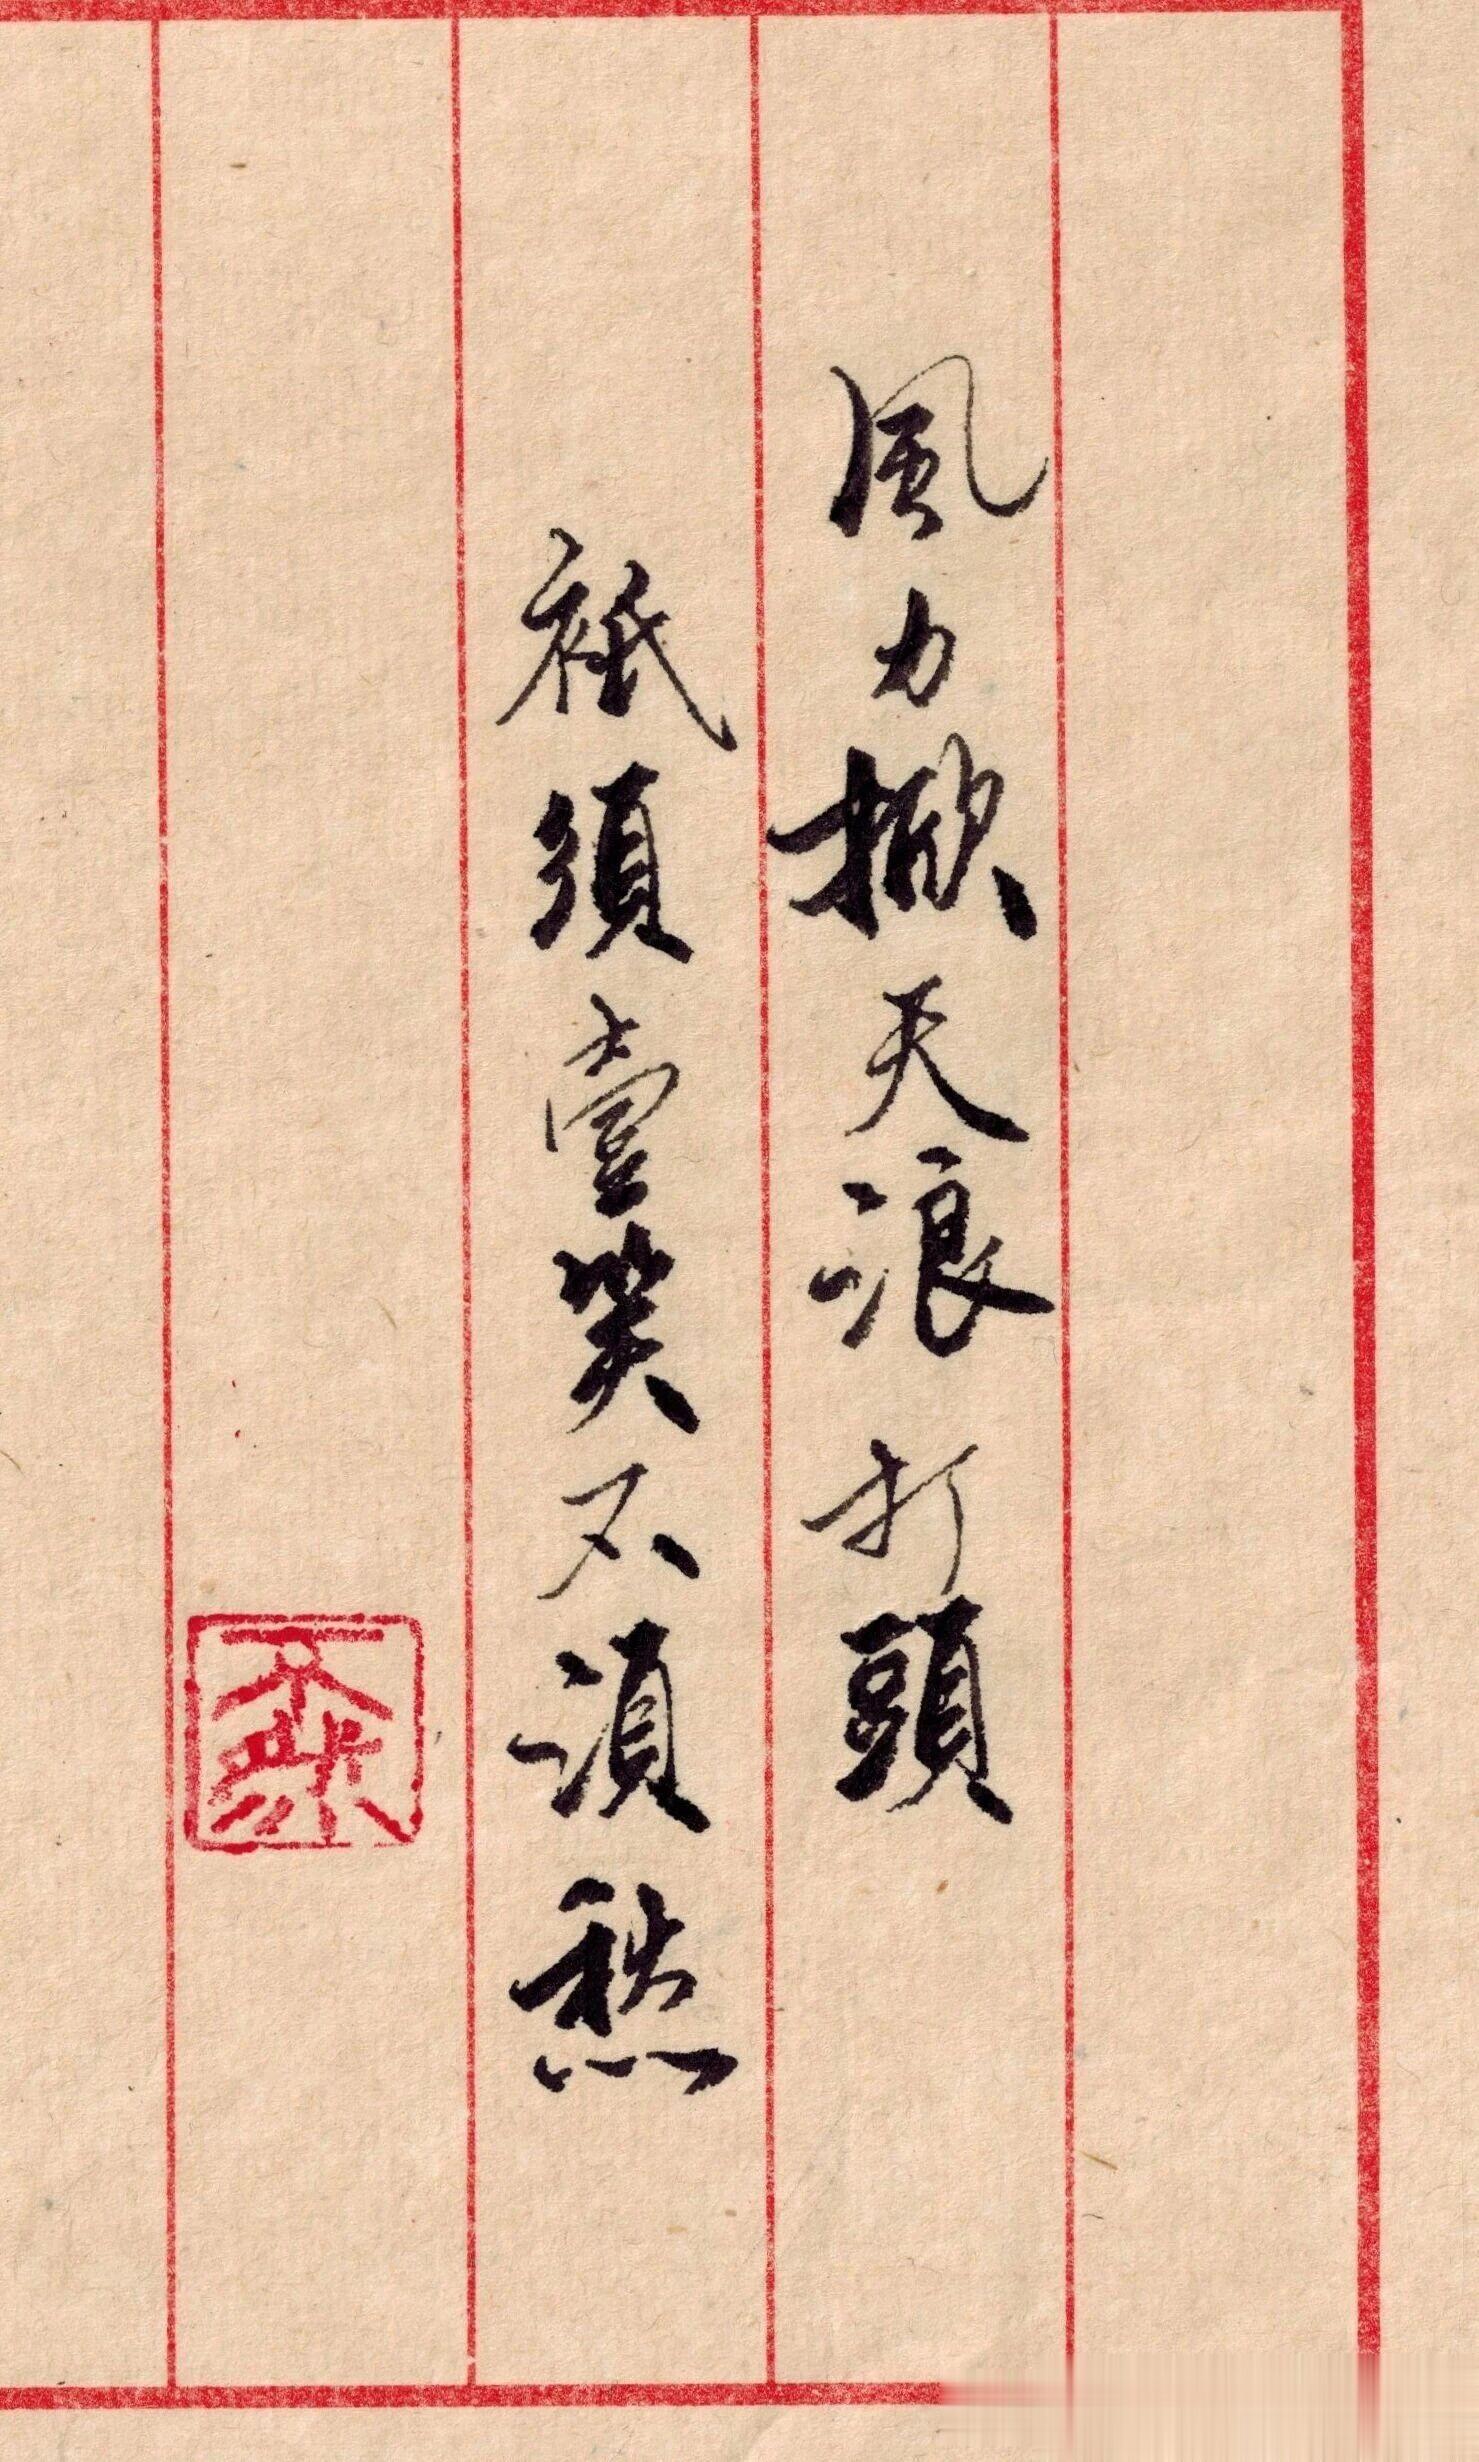 風力掀天浪打頭
祇須壹笑不湏愁